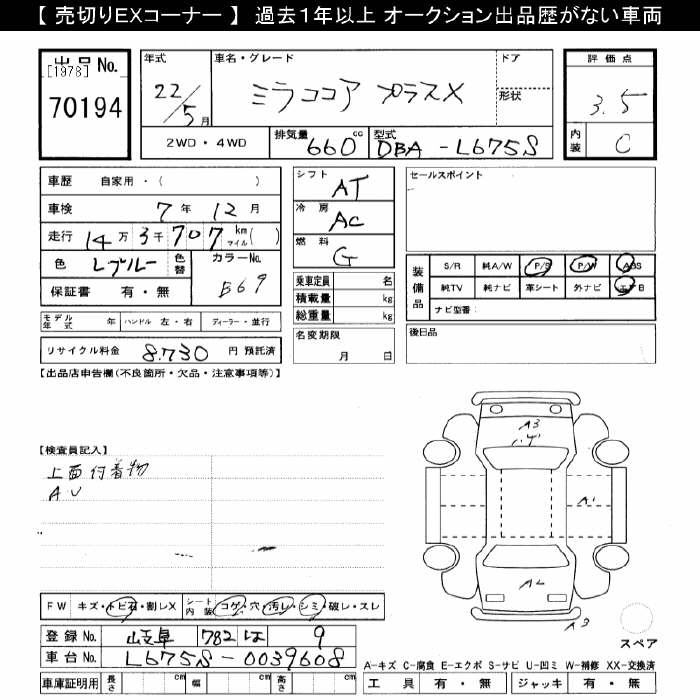 【 売切りEXコーナー 】 過去1年以上 オークション出品歴がない車両
出品 No.
[1978]
70194
年式
22/5月
車名・グレード
ミラココア プラスX
ドア
形状
評価点
3.5
内装
C
2WD・4WD
排気量
660 cc
型式
DBA-L675S
車歴 自家用・( )
車検 7年 12月
走行 14万 3千 707 km マイル( )
色 Lブルー 色替 カラーNo. B69
保証書 有・無
シフト AT
冷房 AC
燃料 G
乗車定員 名
積載量 kg
総重量 kg
セールスポイント
装備品
S/R 純A/W P/S P/W ABS
純TV 純ナビ 革シート 外ナビ エアB
ナビ型番:
モデル年式 年 ハンドル 左・右 ディーラー・並行
名変期限 月 日
後日品
リサイクル料金 8,730 円 預託済
【出品店申告欄(不良箇所・欠品・注意事項等)】
【検査員記入】
上面付着物
AU
A3
ハゲ
A1
A2
A3
スペア
FW キズ・トビ石・割レX シート内装 コゲ・穴・汚レ・シミ・破レ・スレ
登録No. 岐阜 782 は 9
車台No. L675S-0039608
車庫証明用 長さ cm 幅 cm 高さ cm
A-キズ C-腐食 E-エクボ S-サビ U-凹ミ W-補修 XX-交換済
工具 有・無 ジャッキ 有・無